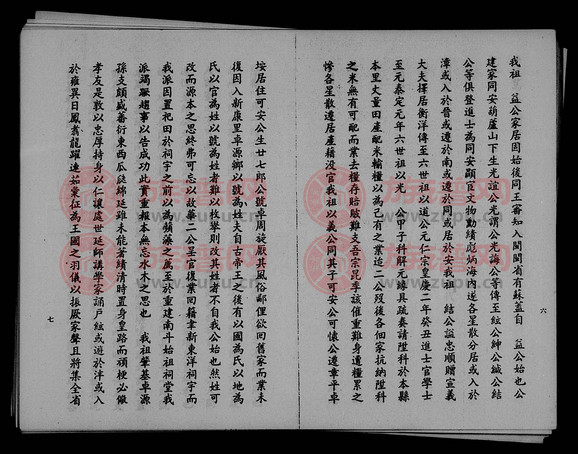 我祖 益公家居固始後同王審知入閩閩省有蘇蓋自 益公始也公
建家同安葫蘆山下生光誼公光謂公光誨公等傳至紘公紳公緘公結
公等俱登進士為同安顯宦文物勳績彪炳海內遂各星散分居或入於
漳或入於晉或遷於南或遷於同或居於安我祖 結公謚忠順贈宣義
大夫擇居衡洋傳至六世祖以道公元仁宗皇慶二年癸丑進士官學士
至元泰定元年六世祖以光 公甲子科解元緣具疏奏請陞科於本縣
本里丈量田產配米輸糧以為己有之業近二公歿後各佃家抗納陞科
之米無有可配而業去糧存賠賅難支吾宗昆季該催重難身遭糧累之
慘各星散遷居產籍沒官我祖以義公同其子可安公可像公遵平卓
垵居住可安公生廿七郎公號卓周旋厭其風俗鄙俚欲回舊家而業未
復因入新康里卓源鄉以號為 夫自古帝王之後有以國為氏以地為
氏以官為姓以號為姓者難以枚舉則改其姓者不自我公始也然姓可
改而源本之思終弗可忘以故華二公呈官復業回籍韋新東洋祠宇而
我派因置祀田於祠宇之前以為頒藻之屬至於重建南斗始祖祠堂我
派竭蹶趨事以告成功此實重報本無忘水木之思也 我祖肇基卓源
孫支頗盛蕃衍東西瓜瓞綿延雖未能著績清時置身皇路而頑梗必儆
孝友是敦以忠厚持身以仁讓處世延師講學家誦戶絃或遊於泮或入
於雍異日鳳翥龍躍連茹彙征為王國之羽儀以振厥家聲且將集全省
六
七